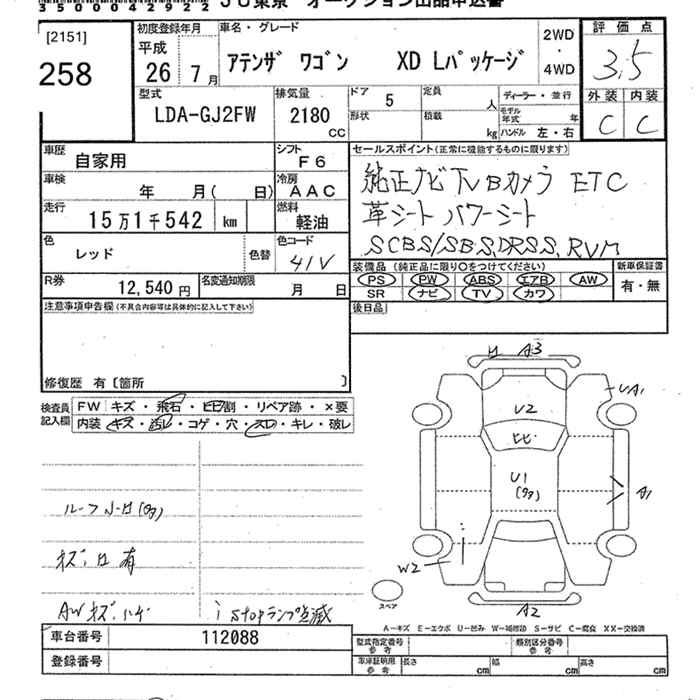 35004292２
JU東京 オークション出品申込書
[2151]
258
初度登録年月
平成
26年7月
車名・グレード
アテンザ ワゴン XD Lパッケージ
2WD
・
4WD
評価点
3.5
外装 内装
C C
型式
LDA-GJ2FW
排気量
2180
cc
ドア 5
形状
定員 人
積載 kg
ディーラー・並行
モデル年式 年
ハンドル 左・右
車歴
自家用
シフト
F6
車検
年 月( 日)
冷房
AAC
走行
15万1千542 km
燃料
軽油
色
レッド
色替
色コード
41V
R券
12,540円
名変通知期限
月 日
セールスポイント(正常に機能するものに限ります)
純正ナビTVBカメラ ETC
革シート パワーシート
SCBS/SBS,DRSS,RVM
装備品 (純正品に限り○をつけてください)
PS PW ABS エアB AW
SR ナビ TV カワ
新車保証書
有・無
後日品
注意事項申告欄(不具合内容等は具体的に記入して下さい)
修復歴 有〔箇所 〕
検査員記入欄
FW キズ・飛石・ヒビ割・リペア跡・×要
内装 キズ・汚レ・コゲ・穴・スレ・キレ・破レ
キズ、凹 有
AWキズ・ハゲ
i stopランプ点滅
凹 A3
UA1
U2
ヒヒ
U1
A1
W2
スペア
A2
A-キズ E-エクボ U-凹み W-補修跡 S-サビ C-腐食 XX-交換済
車台番号 112088
登録番号
型式指定番号
参考
類別区分番号
参考
車庫証明用
参考
長さ cm
幅 cm
高さ cm